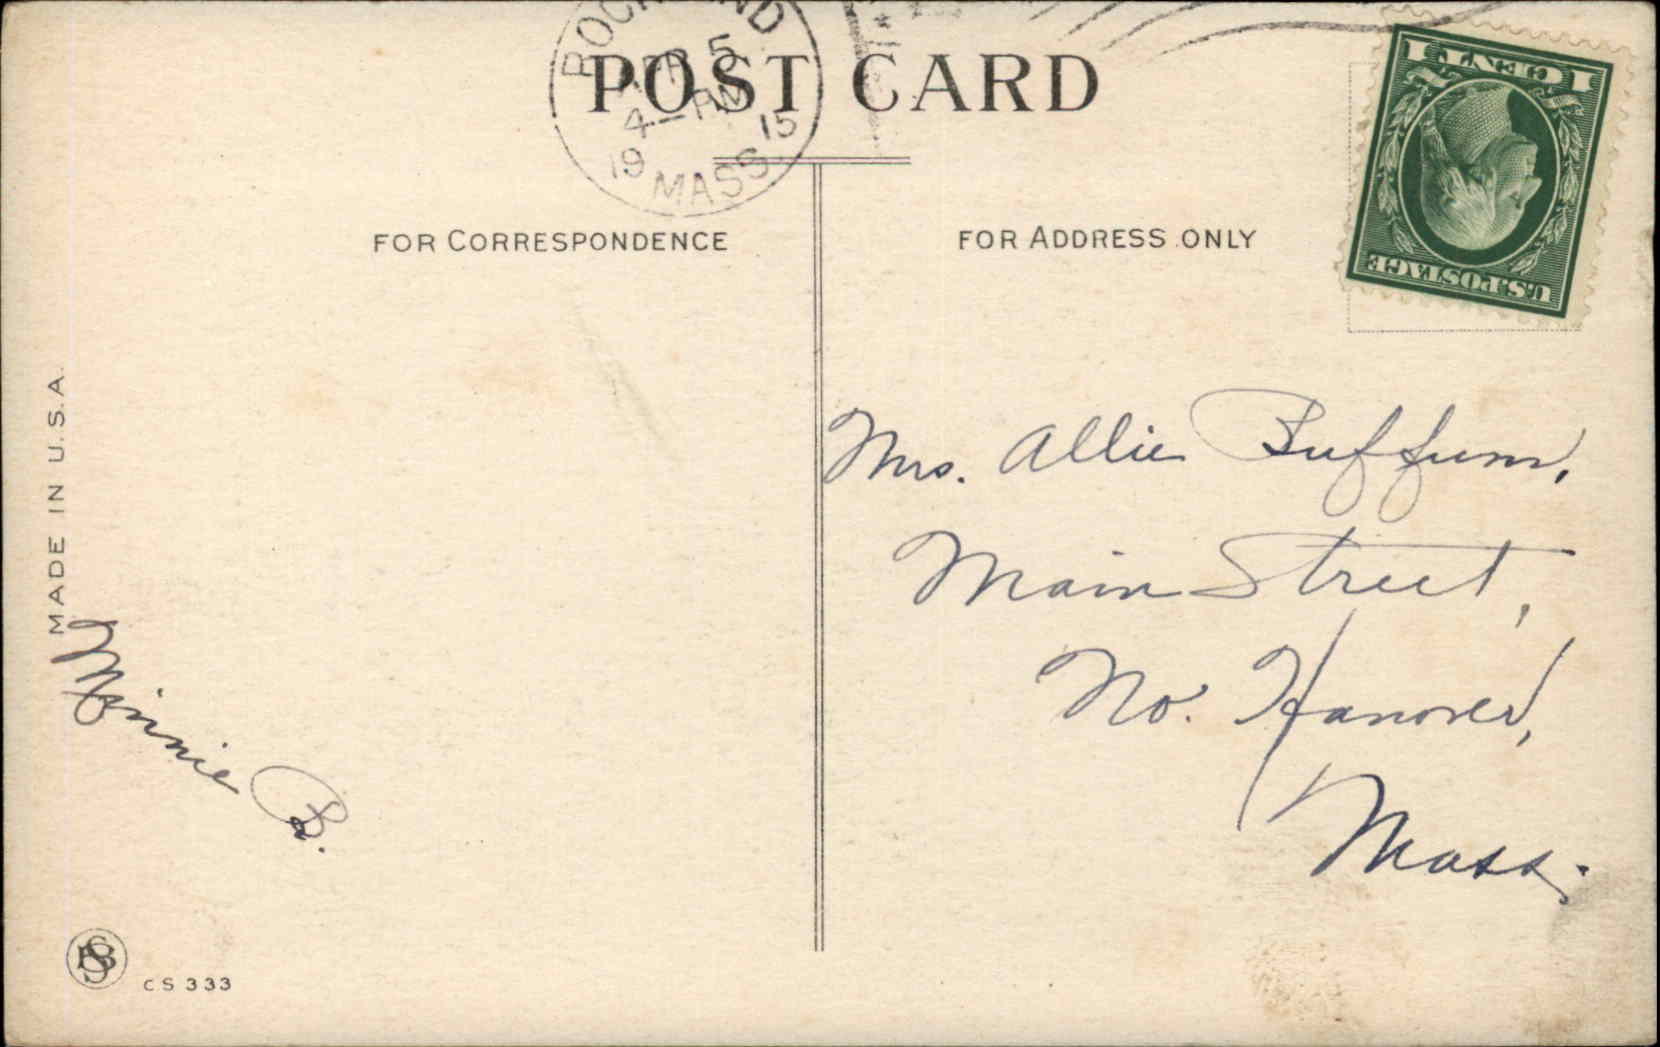 ROCKLAND
APR 5
4 - PM
19 15
MASS.
POST CARD
1 CENT 1
U.S. POSTAGE
FOR CORRESPONDENCE
FOR ADDRESS ONLY
Mrs. Allie Buffum,
Main Street,
No. Hanover,
Mass.
MADE IN U.S.A.
Minnie B.
CS 333